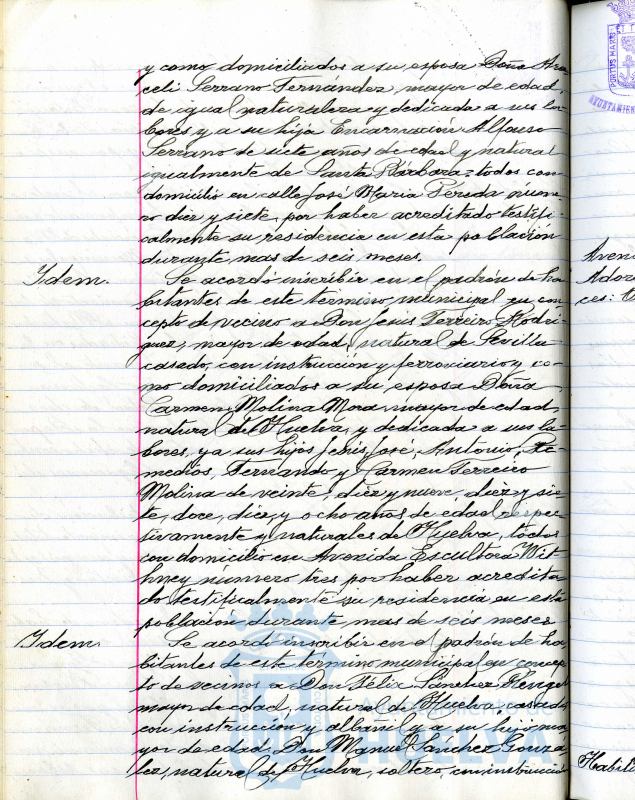 y como domiciliados a su esposa Doña Ara-
celi Serrano Fernández, mayor de edad,
de igual naturaleza y dedicada a sus la-
bores y a su hija Encarnación Alfonso
Serrano de siete años de edad y natural
igualmente de Santa Bárbara = todos con
domicilio en calle José Maria Pereda núme-
ro diez y siete, por haber acreditado testifi-
calmente su residencia en esta población
durante mas de seis meses.
Idem.
Se acordó inscribir en el padrón de ha-
bitantes de este termino municipal en con-
cepto de vecino a Don Jesús Ferreiro Rodri-
guez, mayor de edad, natural de Sevilla
casado, con instrucción y ferroviario y co-
mo domiciliados a su esposa Doña
Carmen Molina Mora, mayor de edad
natural de Huelva, y dedicada a sus la-
bores, y a sus hijos Jesús, José, Antonio, Re-
medios, Fernando y Carmen Ferreiro
Molina de veinte, diez y nueve, diez y sie-
te, doce, diez, y ocho años de edad respec-
tivamente y naturales de Huelva, todos
con domicilio en Avenida Escultora Wit-
hney número tres por haber acredita-
do testificalmente su residencia en esta
población durante mas de seis meses
Idem.
Se acordó inscribir en el padrón de ha-
bitantes de este termino municipal en concep-
to de vecinos a Don Félix Sánchez
mayor de edad, natural de Huelva, casado,
con instrucción y albañil y a su hijo ma-
yor de edad Don Manuel Sánchez Gonzá-
lez, natural de Huelva, soltero, con instrucción
HUELVA
PORTUS MARIS
AYUNTAMIEN
Aveni
Ador
ces:
Habili